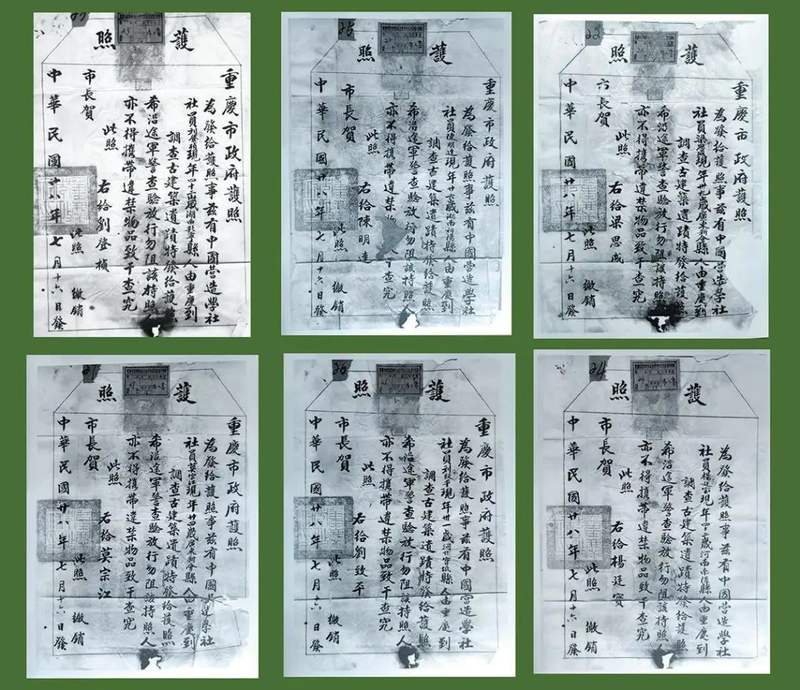 護照
重慶市政府護照
為發給護照事茲有中國營造學社
社員劉敦楨現年四十三歲湖南新寧縣人由重慶到
調查古建築遺蹟特發給護照
希沿途軍警查驗放行勿阻該持照人
亦不得攜帶違禁物品致干查究
此照
右給劉敦楨
市長賀
此照 繳銷
中華民國廿八年七月十六日發
護照
重慶市政府護照
為發給護照事茲有中國營造學社
社員陳明達現年歲湖南縣人由重慶到
調查古建築遺蹟特發給護照
希沿途軍警查驗放行勿阻該持照人
亦不得攜帶違禁物干查究
此照
右給陳明達
市長賀
此照 繳銷
中華民國廿八年七月十六日發
護照
重慶市政府護照
為發給護照事茲有中國營造學社
社員梁思成現年卅九歲廣東新會縣人由重慶到
調查古建築遺蹟特發給護照
希沿途軍警查驗放行勿阻該持照人
亦不得攜帶違禁物品致干查究
此照
右給梁思成
長賀
此照 繳銷
中華民國廿八年七月十六日發
護照
重慶市政府護照
為發給護照事茲有中國營造學社
社員莫宗江現年廿四歲廣東新會縣人由重慶到
調查古建築遺蹟特發給護照
希沿途軍警查驗放行勿阻該持照人
亦不得攜帶違禁物品致干查究
此照
右給莫宗江
市長賀
此照 繳銷
中華民國廿八年七月十六日發
護照
重慶市政府護照
為發給護照事茲有中國營造學社
社員劉致平現年卅一歲縣人由重慶到
調查古建築遺蹟特發給護照
希沿途軍警查驗放行勿阻該持照人
亦不得攜帶違禁物品致干查究
此照
右給劉致平
市長賀
此照 繳銷
中華民國廿八年七月十六日發
護照
重慶市政府護照
為發給護照事茲有中國營造學社
社員楊廷寶現年歲河南南陽縣人由重慶到
調查古建築遺蹟特發給護照
希沿途軍警查驗放行勿阻該持照人
亦不得攜帶違禁物品致干查究
此照
右給楊廷寶
市長賀
此照 繳銷
中華民國廿八年七月十六日發